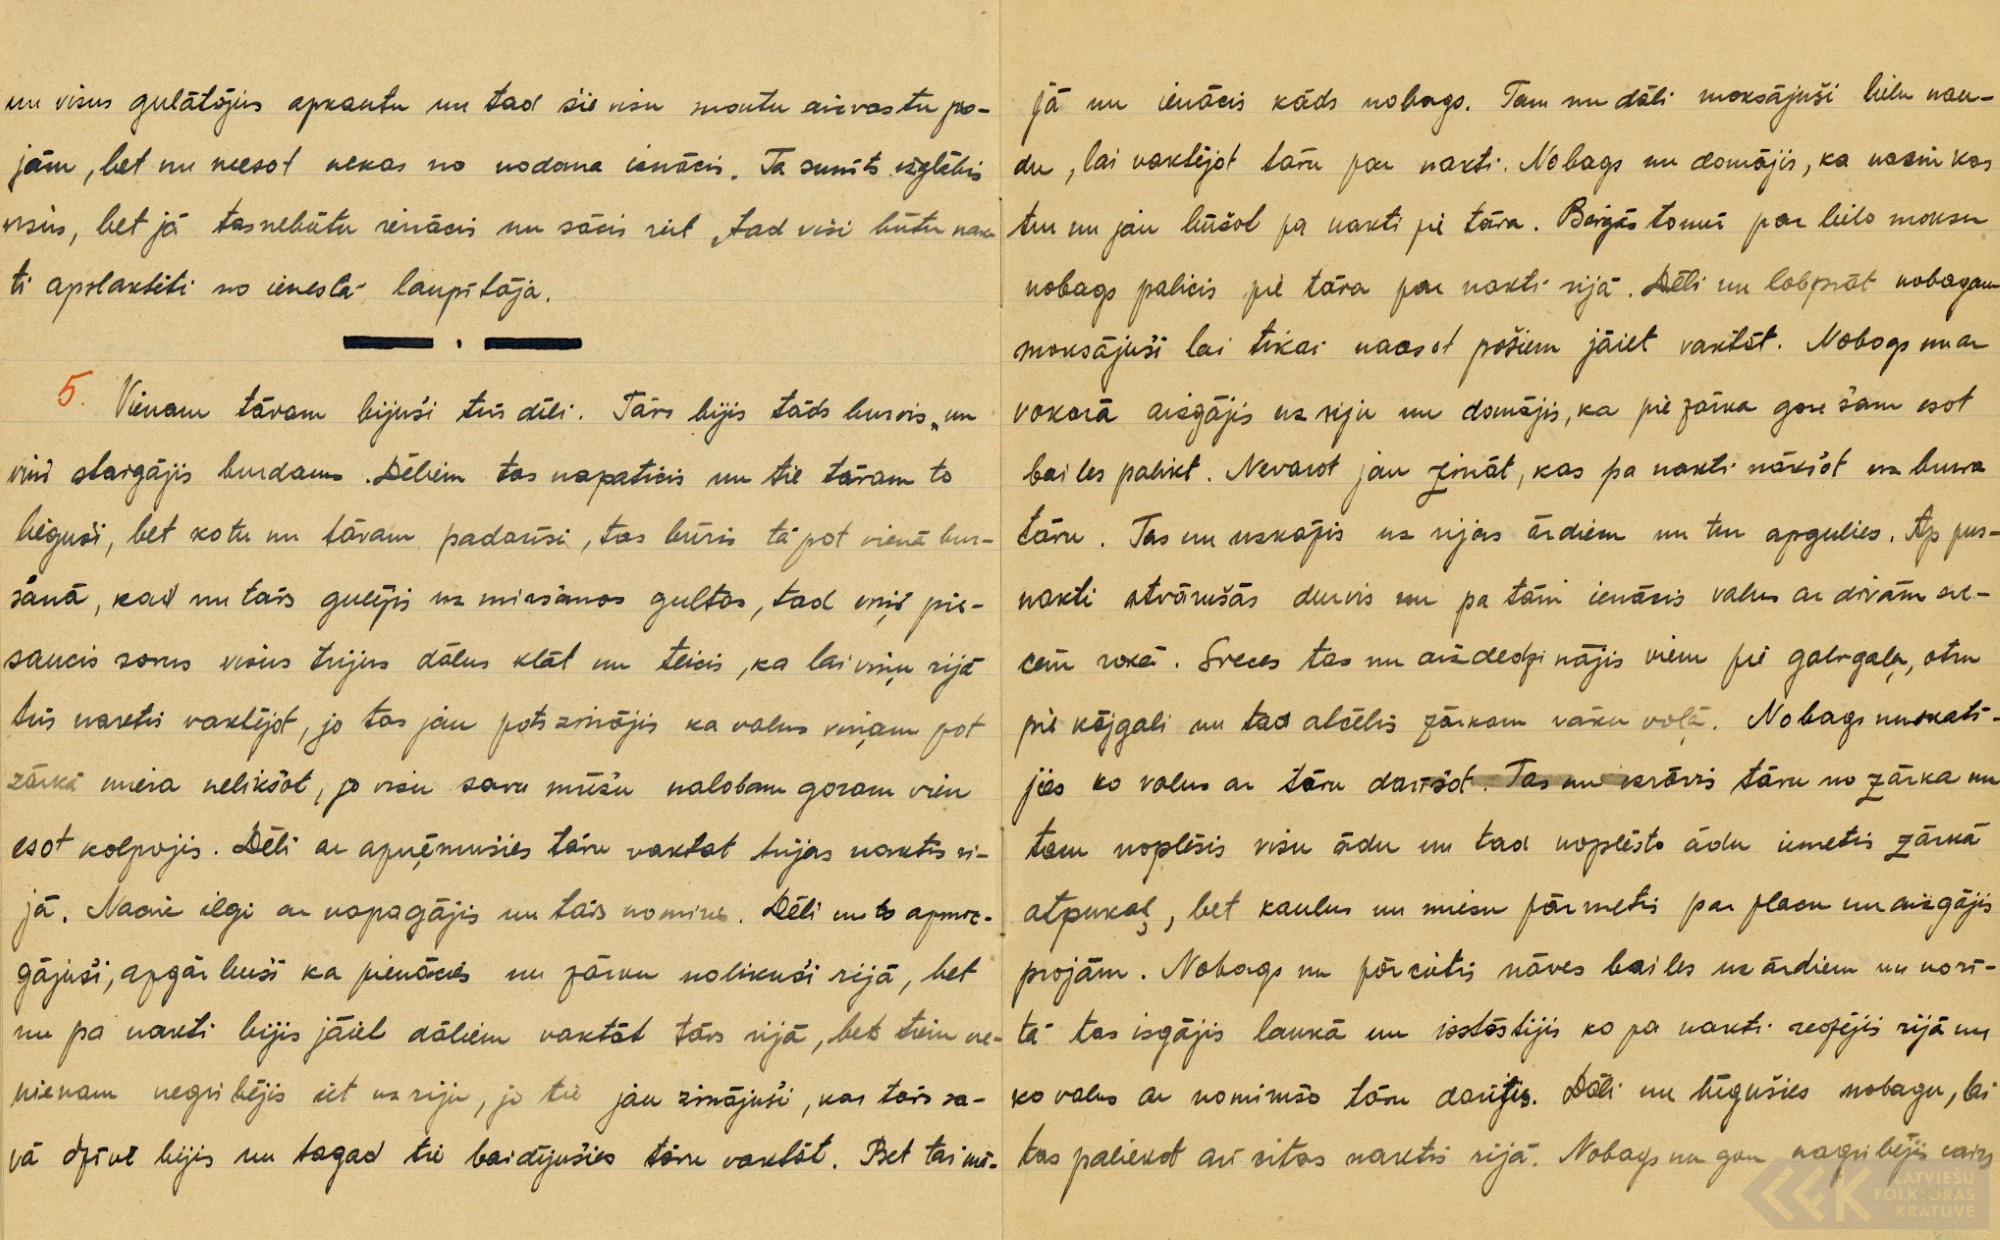 un visus gulātājus apkautu un tad šie visu mantu aizvastu pro-
jām, bet nu neesot nekas no nodoma iznācis. Ta sunīts izglābis
visus, bet jā tas nebūtu ienācis un sācis riet, tad visi būtu nak-
ti apslaktēti no ienestā laupītāja.
5. Vienam tāvam bijuši trīs dēli. Tāvs bijis tāds burvis, un
viņš staigājis burdams. Dēliem tas napaticis un tie tāvam to
lieguši, bet ko tu nu tāvam padarīsi, tas būris tā pat vienā bur-
šanā, kad nu tāvs gulējis uz miršanas gultas, tad viņš pie-
saucis savus visus trijus dālus klāt un teicis, ka lai viņu rijā
trīs naktis vaktējot, jo tas jau pats zinājis ka valns viņam pat
zārkā miera nelikšot, jo visu savu mūžu nalobam goram vien
esot kolpojis. Dēli ar apņēmušies tāvu vaktāt trijas naktis ri-
jā. Naavis ilgi ar napagājis un tāvs nomiris. Dēli nu to apmaz-
gājuši, apgārbuši ka pienācies un zārku nolikuši rijā, bet
nu pa nakti bijis jāiet dāliem vaktāt tāvs rijā, bet tiem ne-
vienam negribējis iet uz riju, jo tie jau zinājuši, kas tāvs sa-
vā dzīvē bijis un tagad tie baidījušies tāvu vaktāt. Bet tai mā-
jā nu ienācis kāds nobags. Tam nu dāli moksājuši lielu nau-
du, lai vaktējot tāvu par nakti. Nobags nu domājis, ka nazin kas
tur nu jau būšot pa nakti pie tāva. Beigās tomēr par lielo moksu
nobags palicis pie tāva par nakti rijā. Dēli nu lobprāt nobagam
moksājuši lai tikai naasot pošiem jāiet vaktāt. Nobags nu ar
vokorā aizgājis uz riju un domājis, ka pie zārka gore šam esot
bailes palikt. Nevarot jau zināt, kas pa nakti nākšot uz burva
tāvu. Tas nu uzkāpis uz rijas ārdiem un tur apgulies. Ap pus-
nakti atvārušās durvis un pa tām ienācis valns ar divām sve-
cēm rokā. Sveces tas nu aizdedzinājis vienu pie galvgaļa, otru
pie kājgali un tad atcēlis zārkam vāku vaļā. Nobags nu skatī-
jies ko valns ar tāvu darīšot. Tas nu izrāvis tāvu no zārka un
tam noplēsis visu ādu un tad noplēsto ādu iemetis zārkā
atpukaļ, bet kaulus un miesu pārmetis par placu un aizgājis
projām. Nobags nu pārcietis nāves bailes uz ārdiem un norī-
tā tas izgājis laukā un izstāstijis ko pa nakti redzējis rijā un
ko valns ar nomirušo tāvu darijis. Dāli nu lūgušies nobagu, lai
tas paliekot arī citas naktis rijā. Nobags nu gan nagribējis vairs
LATVIEŠU
FOLKLORAS
KRĀTUVE